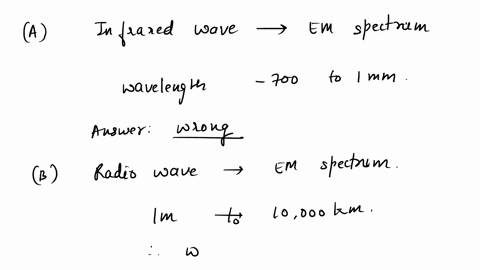 (A) Infrared wave → EM spectrum
wavelength - 700 to 1 mm.
Answer: wrong
(B) Radio wave → EM spectrum.
1m to 10,000 km.
∴ w